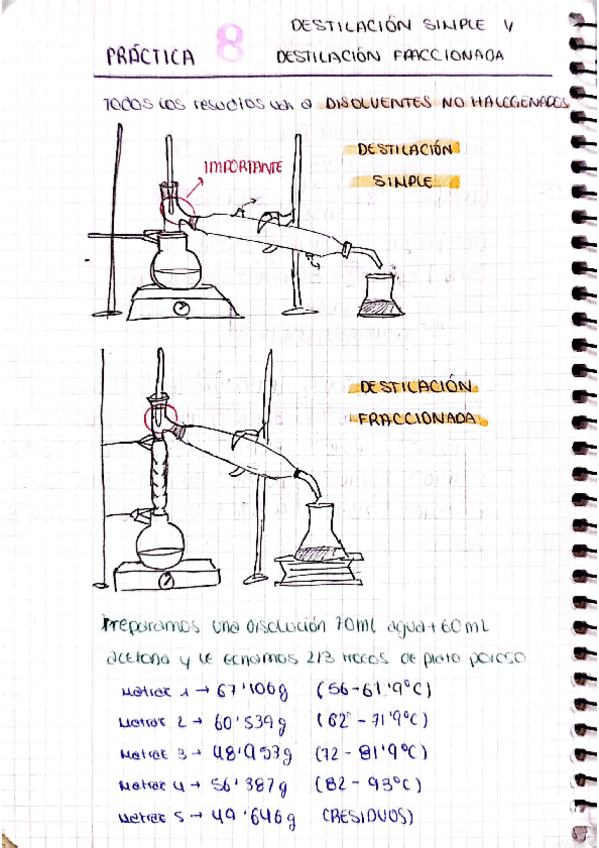 DESTILACIÓN SIMPLE Y
PRÁCTICA 8 DESTILACIÓN FRACCIONADA
TODOS LOS residuos van a DISOLVENTES NO HALOGENADOS
DESTILACIÓN
SIMPLE
IMPORTANTE
DESTILACIÓN
FRACCIONADA
Preparamos una disolución 70ml agua + 60 ml
acetona y le echamos 2/3 trozos de plato poroso
Matraz 1 → 67'106g (56-61'9°C)
Matraz 2 → 60'539g (62 - 71'9°C)
Matraz 3 → 48'953g (72 - 81'9°C)
Matraz 4 → 56'387g (82 - 93°C)
Matraz 5 → 49'646g (RESIDUOS)